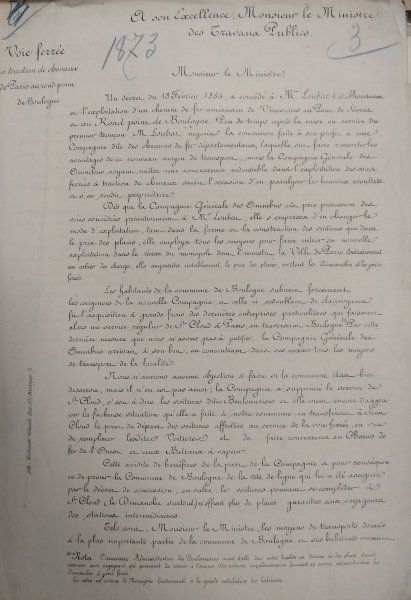 A son Excellence, Monsieur le Ministre
des Travaux Publics
1873
3
Voie ferrée
à traction de chevaux
de Paris au rond point
de Boulogne
Monsieur le Ministre,
Un décret du 18 Février 1854, a concédé à Mr. Loubat, l'établissement
et l'exploitation d'un chemin de fer américain de Vincennes au Pont de Sèvres
et au Rond point de Boulogne. Peu de temps après la mise en service du
premier tronçon, M. Loubat, négocia la concession faite à son profit à une
Compagnie dite des chemins de fer départementaux, laquelle sut faire ressortir les
avantages de ce nouveau moyen de transport, mais la Compagnie Générale des
Omnibus voyant naître une concurrence redoutable dans l'exploitation des voies
ferrées à traction de chevaux saisit l'occasion d'en paralyser les heureux résultats
et s'en rendit propriétaire.
Dès que la Compagnie Générale des Omnibus eût pris possession des
voies concédées primitivement à Mr. Loubat, elle s'empressa d'en changer le
mode d'exploitation, tant dans la forme et la construction des voitures que dans
le prix des places, elle employa tous les moyens pour faire entrer sa nouvelle
exploitation dans le réseau du monopole dont l'investit la Ville de Paris
au cahier des charges, elle augmenta notablement le prix des places, surtout les Dimanches et les jours
fériés.
Les habitants de la commune de Boulogne subirent forcément
les exigences de la nouvelle Compagnie, et celle-ci redoublant de
fit l'acquisition à grands frais des dernières entreprises particulières qui faisaient
alors un service régulier de St. Cloud à Paris, en traversant Boulogne. Par cette
dernière mesure que nous n'avons pas à justifier, la Compagnie Générale des
Omnibus arrivait à son but, en concentrant dans ses mains tous les moyens
de transport de la localité.
Nous n'aurions aucune objection à faire si la commune était bien
desservie, mais il n'en est pas ainsi; la Compagnie a supprimé le service de
St. Cloud, c'est à dire les voitures dites Boulonnaises et elle vient encore d'aggra-
ver la fâcheuse situation qu'elle a faite à notre commune en transférant à St.
Cloud le point de départ des voitures affectées au service de la voie ferrée, en vue
de remplacer lesdites Voitures et de faire concurrence au Chemin de
fer de l'Ouest et aux Bateaux à vapeur.
Cette avidité de bénéfices de la part de la Compagnie a pour conséquen-
ce de priver la Commune de Boulogne de la tête de ligne qui lui a été assignée
par le décret de concession, en outre, les voitures pouvant se compléter à
St. Cloud (le Dimanche surtout) n'offrent plus de places garanties aux voyageurs
des stations intermédiaires.
Tels sont, Monsieur le Ministre, les moyens de transports donnés
à la plus importante partie de la commune de Boulogne et ses habitants viennent
Nota. L'ancienne Administration des Boulonnaises